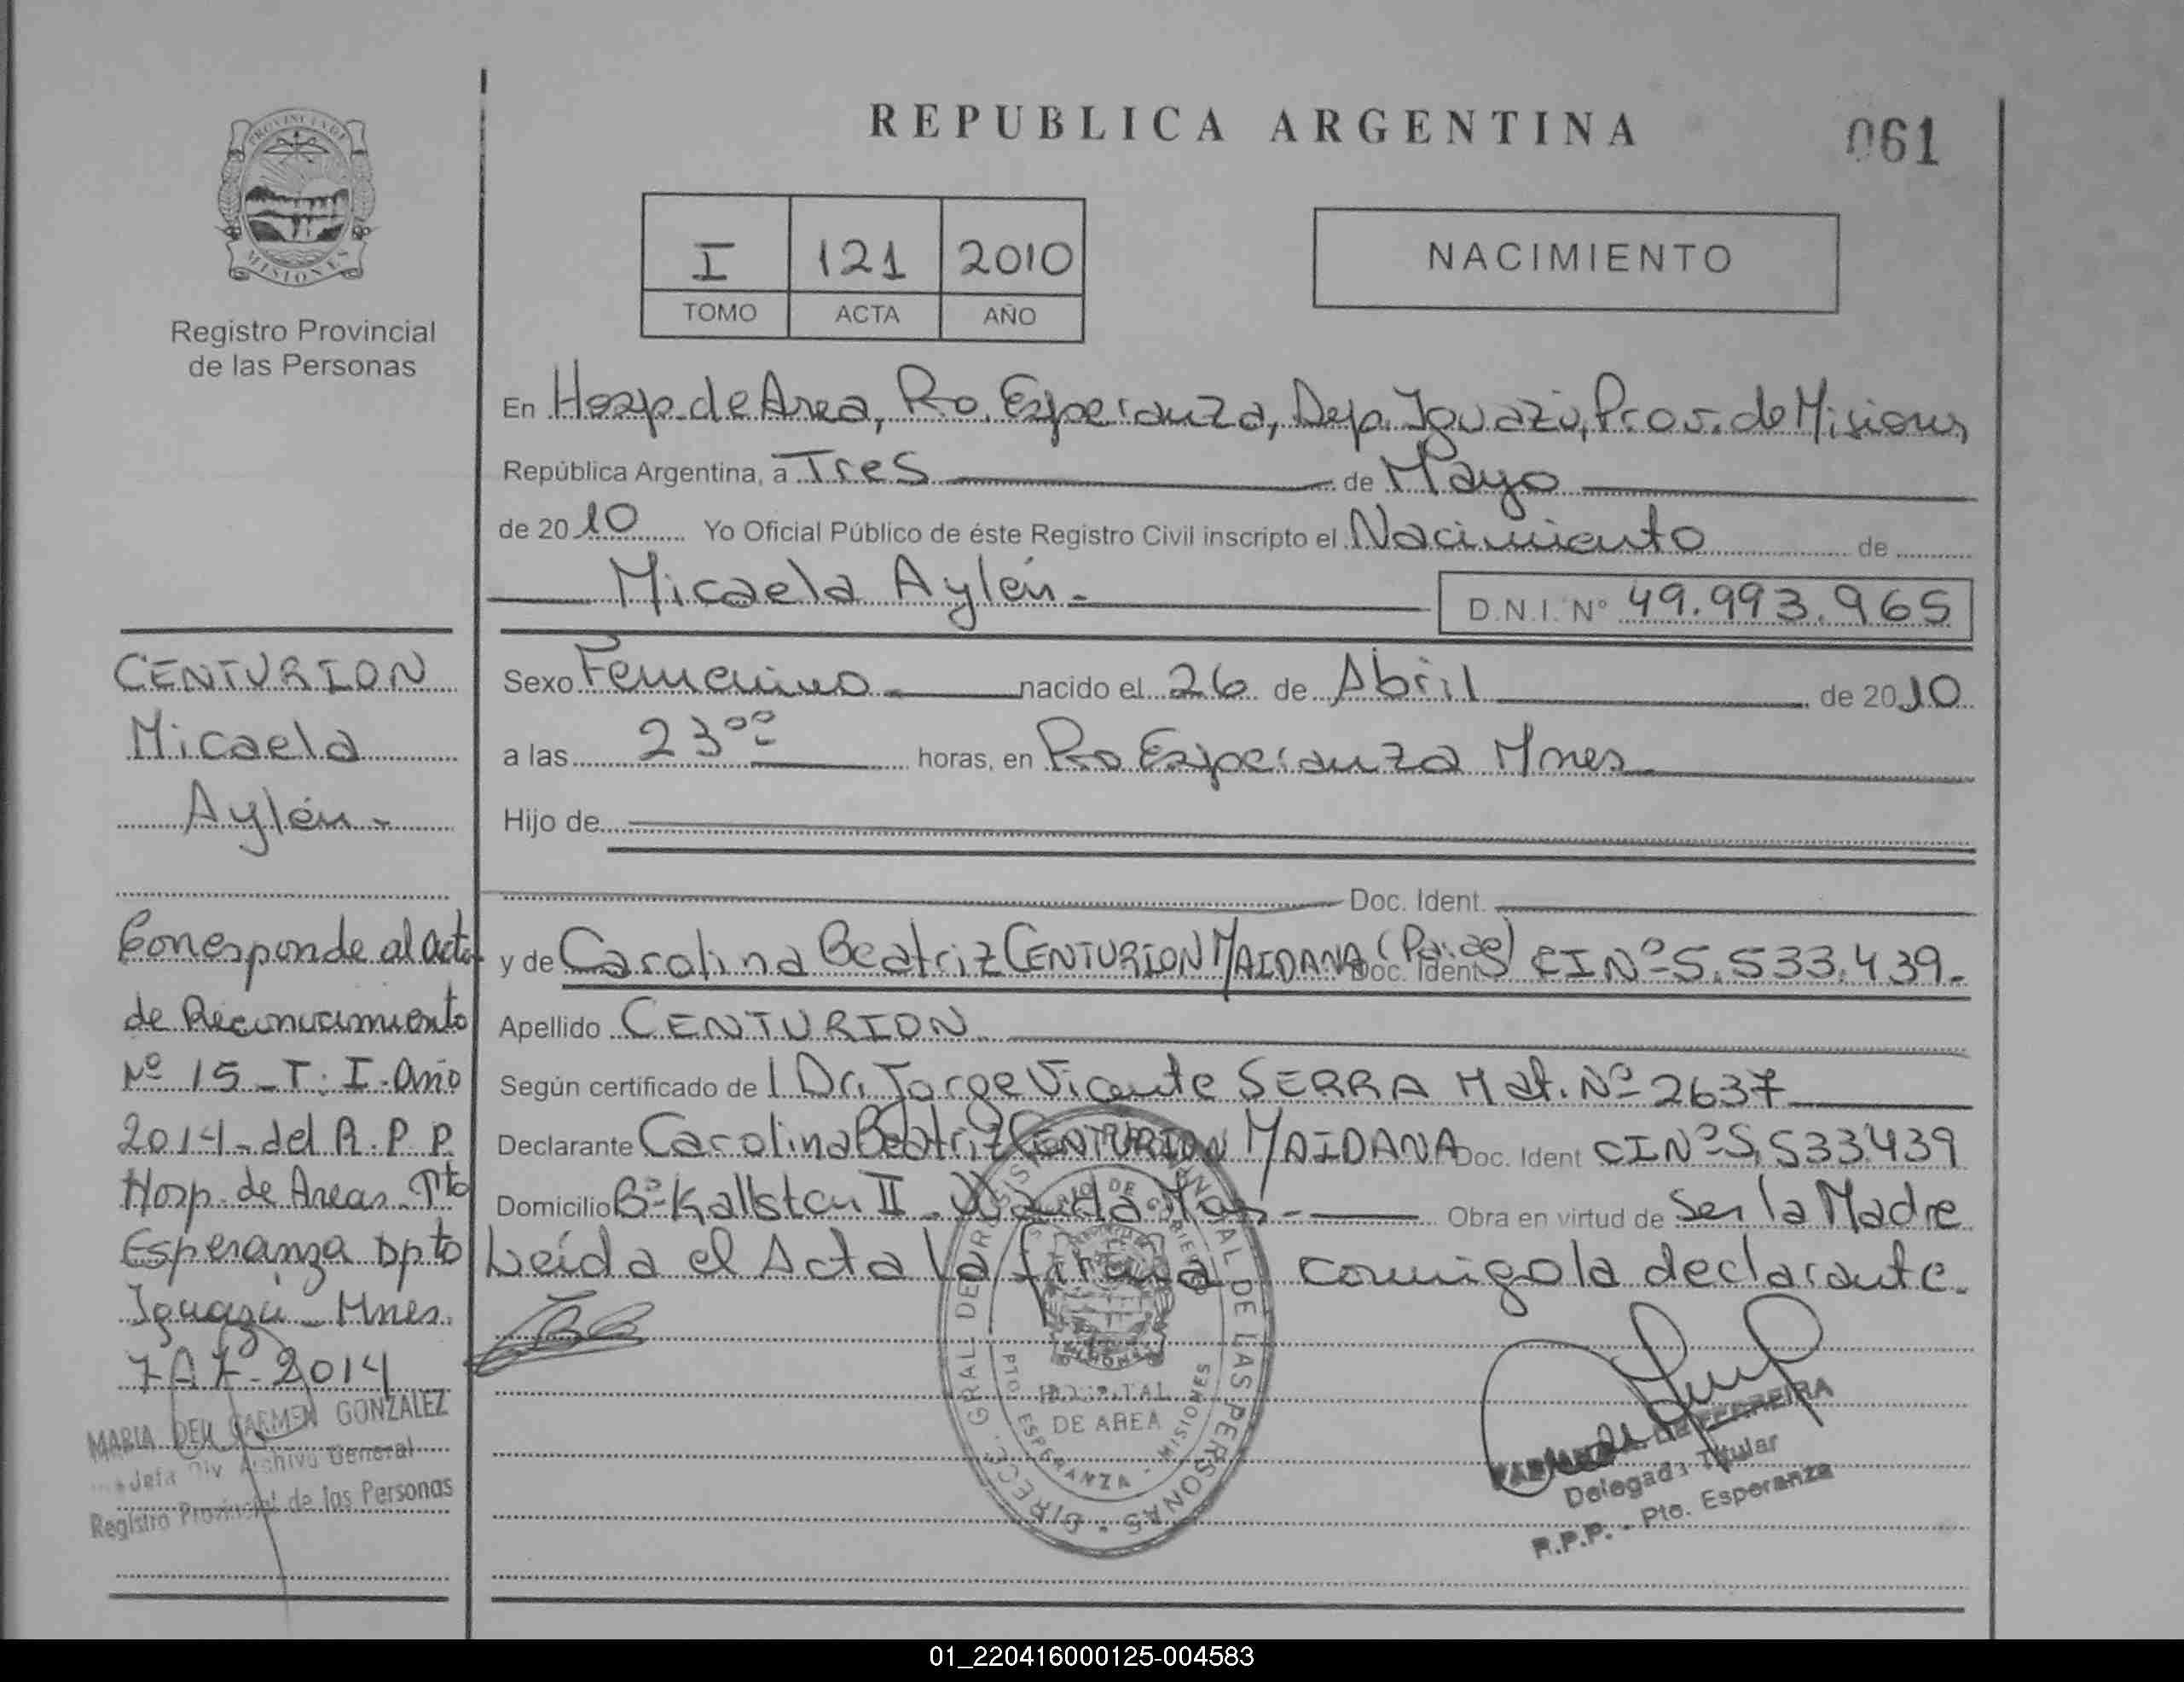 REPUBLICA ARGENTINA
061
PROVINCIA DE
MISIONES
Registro Provincial
de las Personas
I 121 2010
TOMO ACTA AÑO
NACIMIENTO
En Hosp. de Area, Pto. Esperanza, Dep. Iguazú, Prov. de Misiones,
República Argentina, a Tres de Mayo
de 2010 Yo Oficial Público de éste Registro Civil inscripto el Nacimiento de
Micaela Aylén.-
D.N.I. Nº 49.993.965
Sexo Femenino nacido el 26 de Abril de 2010
a las 23ºº horas, en Pto Esperanza Mnes
Hijo de
Doc. Ident.
y de Carolina Beatriz CENTURION MAIDANA Doc. Ident CI Nº 5.533.439.-
Apellido CENTURION
Según certificado de l Dr. Jorge Vicente SERRA Mat. Nº 2637
Declarante Carolina Beatriz CENTURION MAIDANA Doc. Ident CI Nº 5.533.439
Domicilio Bº Kallsten II - Wanda Obra en virtud de Ser la Madre
Leída el Acta la firma comigo la declarante.
CENTURION
Micaela
Aylén.-
Corresponde al acta
de Reconocimiento
Nº 15 - T: I - Año
2014 - del R.P.P.
Hosp. de Areas - Pto
Esperanza Dpto
Iguazú - Mnes.
2014
MARIA DEL CARMEN GONZALEZ
Jefa Div Archivo General
Registro Provincial de las Personas
DIRECC. GRAL. DE REGISTRO PROVINCIAL DE LAS PERSONAS
HOSPITAL
DE AREA
PTO. ESPERANZA - MISIONES
DE FERREIRA
Delegada Titular
R.P.P. - Pto. Esperanza
01_220416000125-004583